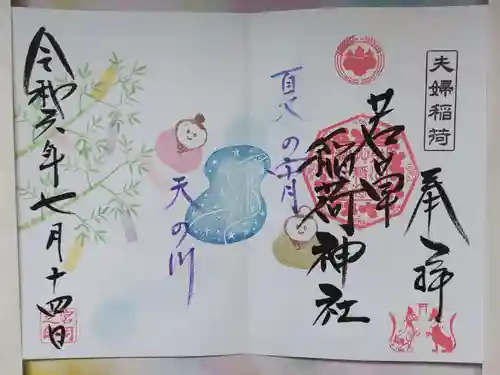 夫婦稲荷
奉拝
若草
稲荷神社
夏の六月
天の川
令和六年七月十四日